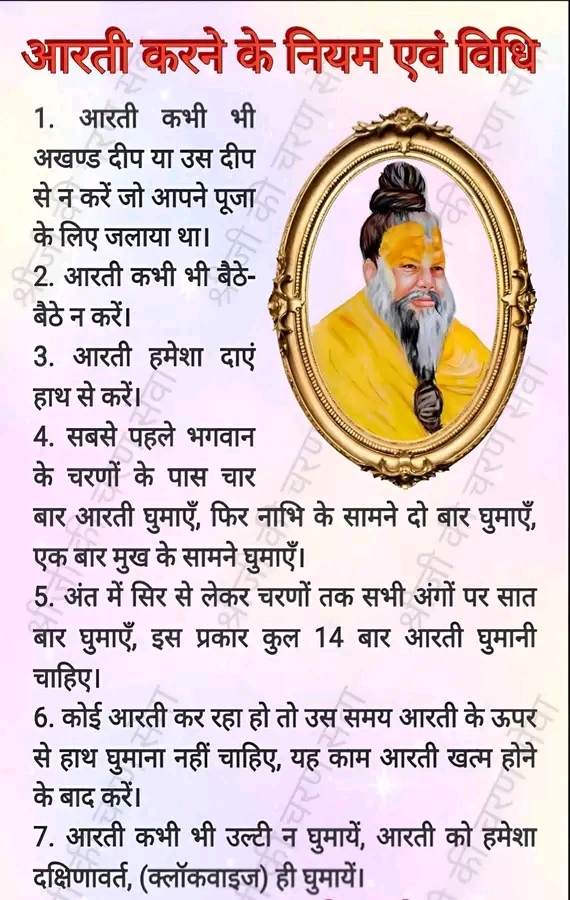 आरती करने के नियम एवं विधि
1. आरती कभी भी
अखण्ड दीप या उस दीप
से न करें जो आपने पूजा
के लिए जलाया था।
2. आरती कभी भी बैठे-
बैठे न करें।
3. आरती हमेशा दाएं
हाथ से करें।
4. सबसे पहले भगवान
के चरणों के पास चार
बार आरती घुमाएँ, फिर नाभि के सामने दो बार घुमाएँ,
एक बार मुख के सामने घुमाएँ।
5. अंत में सिर से लेकर चरणों तक सभी अंगों पर सात
बार घुमाएँ, इस प्रकार कुल 14 बार आरती घुमानी
चाहिए।
6. कोई आरती कर रहा हो तो उस समय आरती के ऊपर
से हाथ घुमाना नहीं चाहिए, यह काम आरती खत्म होने
के बाद करें।
7. आरती कभी भी उल्टी न घुमायें, आरती को हमेशा
दक्षिणावर्त, (क्लॉकवाइज) ही घुमायें।